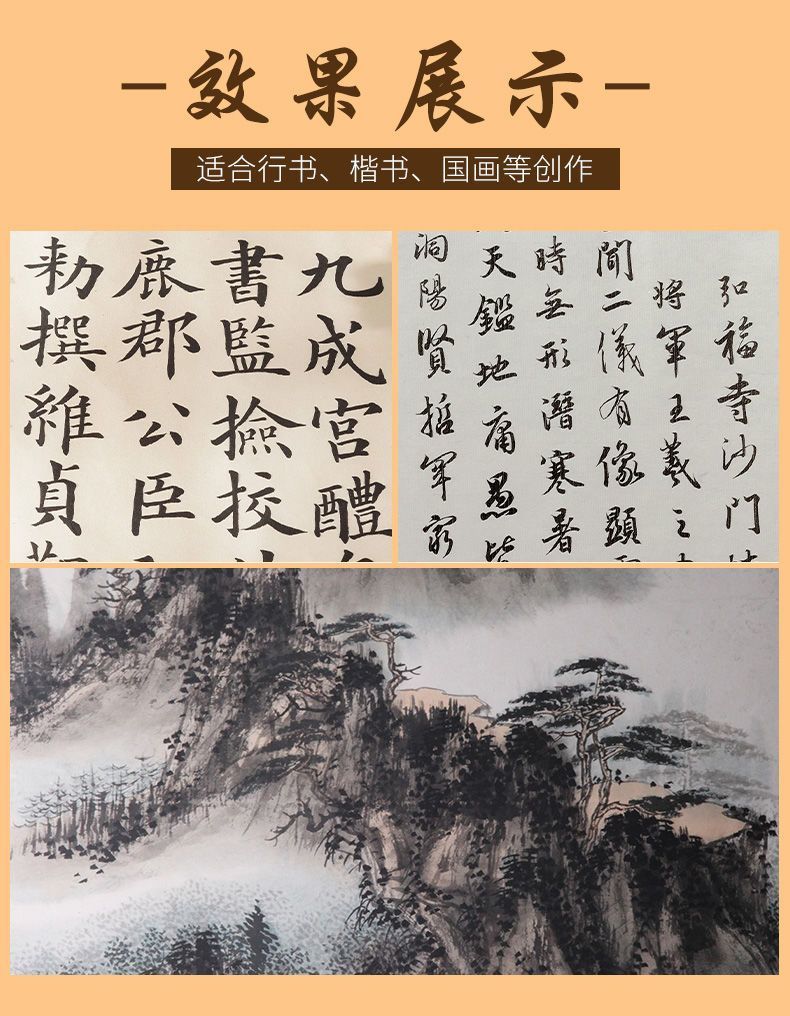 效果展示
适合行书、楷书、国画等创作
九成宮醴
書監撿挍
鹿郡公臣
勑撰維貞
弘福寺沙門
将軍王羲之
聞二儀有像顯
時無形潛寒暑
天鑑地庸愚皆
洞陽賢哲罕窮